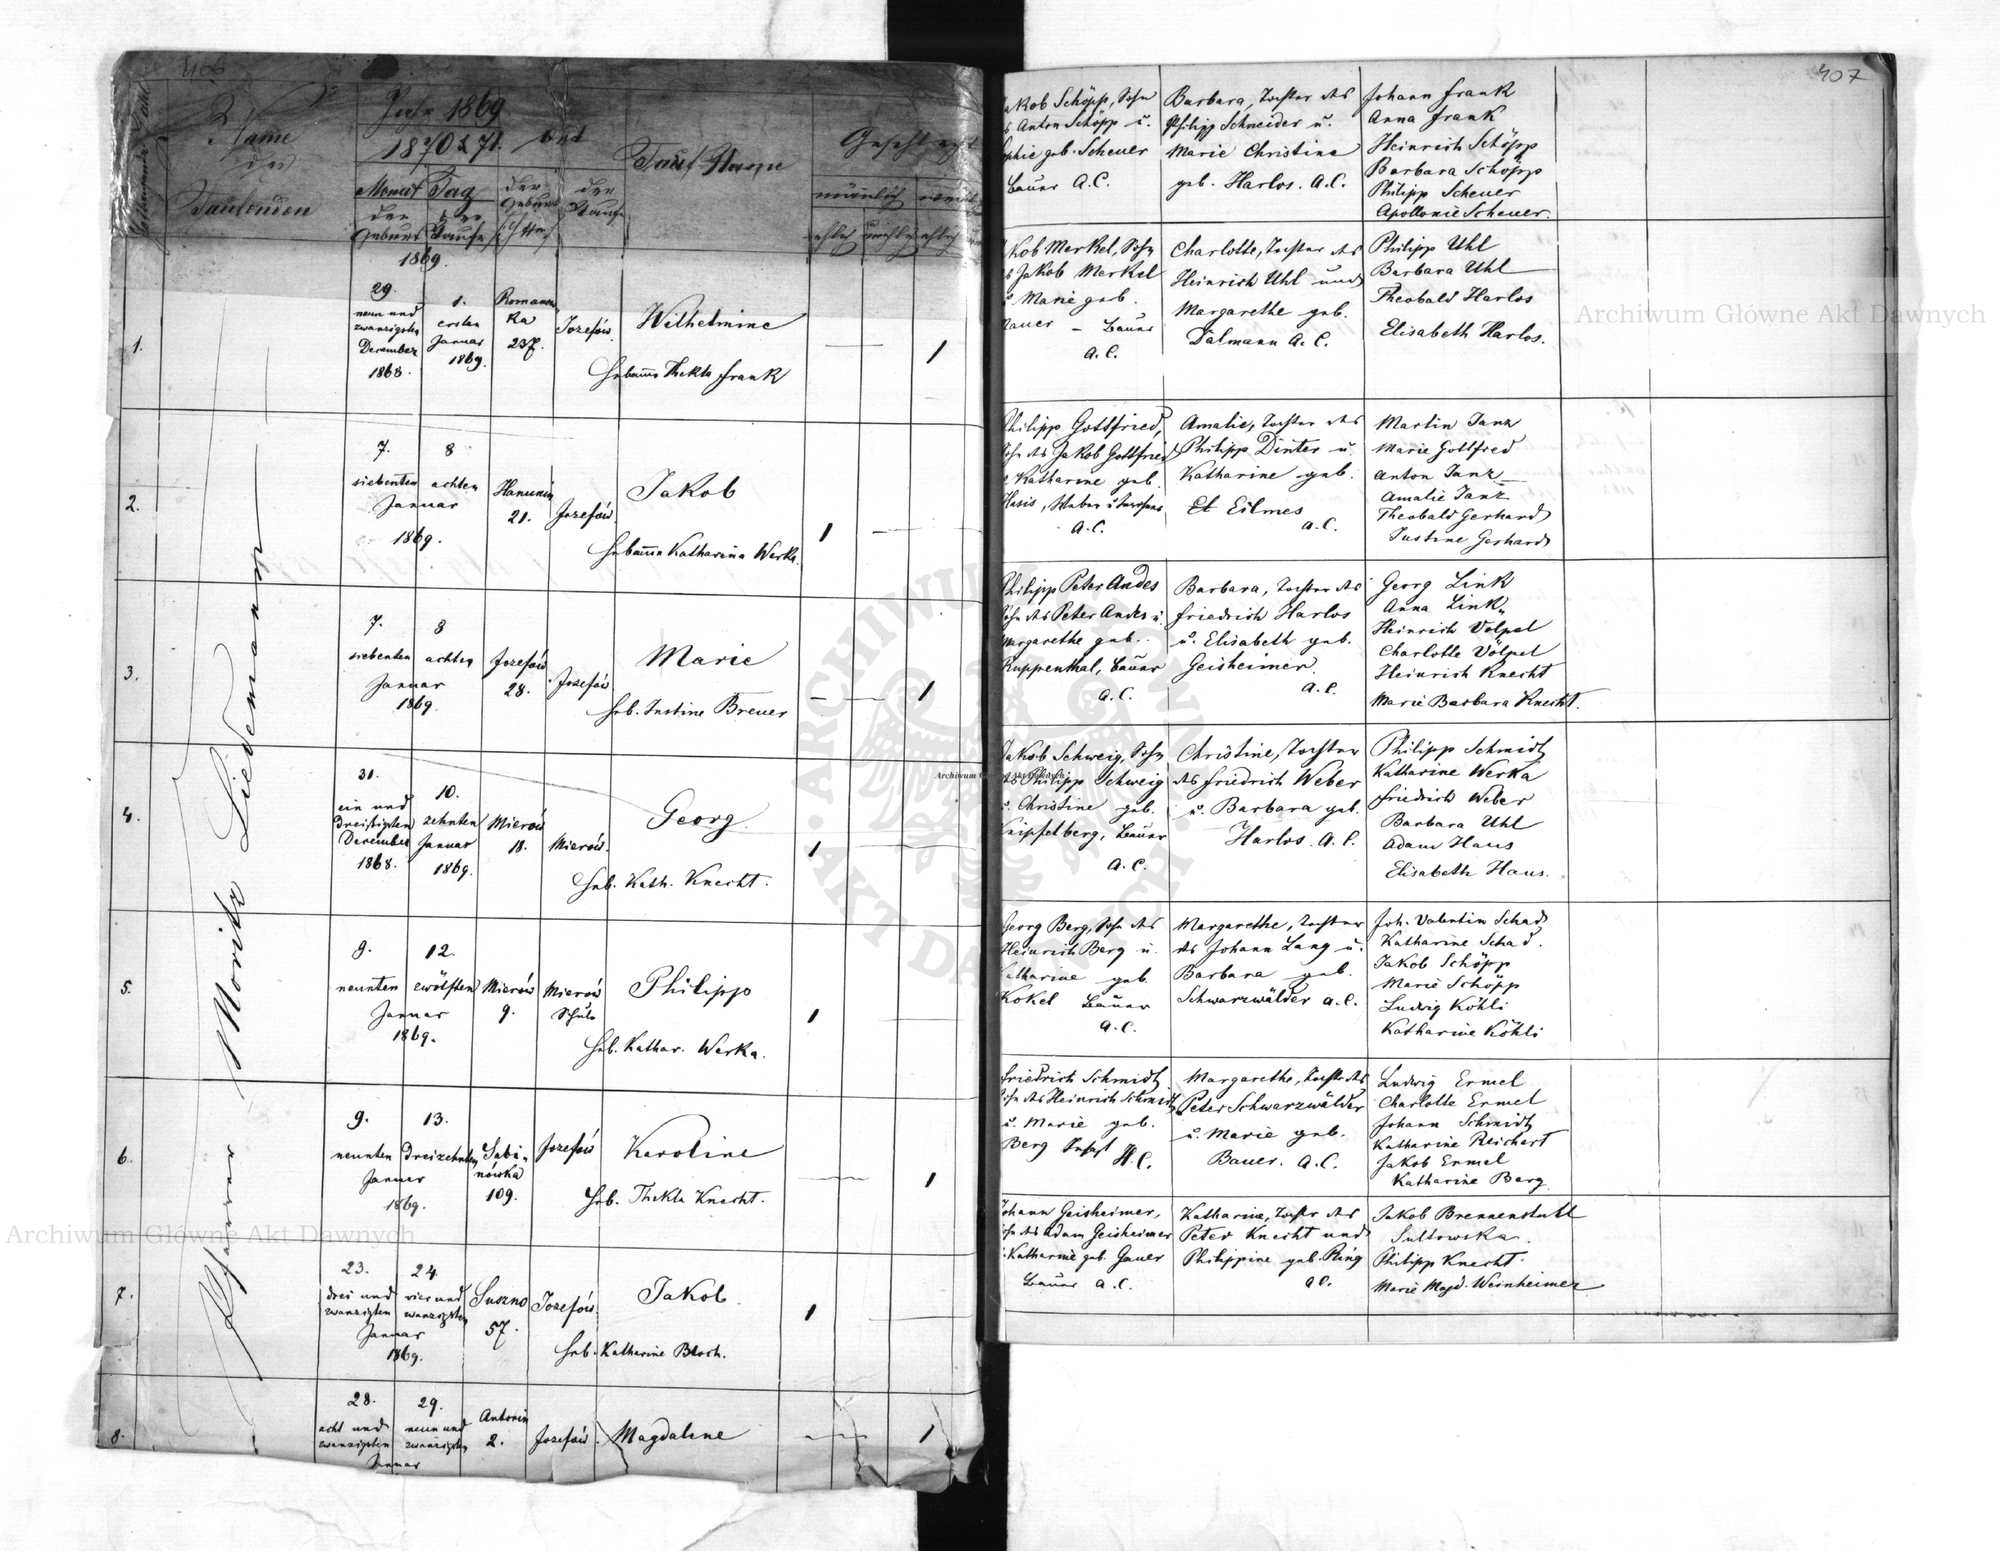 406
Name
des
Taufenden
Jahr 1869
1870 & 71.
Monat Tag
der
Geburt
der
Taufe
der
Geburt
der
Taufe
Tauf Name
Geschlecht
männlich
ehlich
1869.
1.
29.
neun und
zwanzigsten
December
1868.
1.
ersten
Januar
1869.
Romanow
ka
237.
Josefów.
Wilhelmine
Hebamme Thekla Frank
1
2.
7.
siebenten
8
achten
Januar
1869.
Hanunin
21.
Josefów.
Jakob
Hebamme Katharina Werka.
1
3.
7.
siebenten
8
achten
Januar
1869.
Josefów
28.
Josefów.
Marie
Heb. Justine Breuer
1
4.
31.
ein und
dreißigsten
December
1868.
10.
zehnten
Januar
1869.
Mierów
18.
Mierów.
Georg
Heb. Kath. Knecht.
1
5.
9.
neunten
12.
zwölften
Januar
1869.
Mierów
9.
Mierów
Schule
Philipp
Heb. Kathar. Werka.
1
6.
9.
neunten
13.
dreizehnten
Januar
1869.
Sabi-
nówka
109.
Josefów
Karoline
Heb. Thekla Knecht.
1
7.
23.
drei und
zwanzigsten
24.
vier und
zwanzigsten
Januar
1869.
Suszno
57.
Josefów.
Jakob
Heb. Katharine Bloch.
1
8.
28.
acht und
zwanzigsten
29.
neun und
zwanzigsten
Januar
Antonin
2.
Josefów.
Magdalene
1
Pfarrer Moritz Liedemann
407
Jakob Schöpp, Sohn
des Anton Schöpp u.
Sophie geb. Scheuer
Bauer A.C.
Barbara, Tochter des
Philipp Schneider u.
Marie Christine
geb. Harlos. A.C.
Johann Frank
Anna Frank
Heinrich Schöpp
Barbara Schöpp
Philipp Scheuer
Apollonie Scheuer.
Jakob Merkel, Sohn
des Jakob Merkel
u. Marie geb.
Bauer
A.C.
Charlotte, Tochter des
Heinrich Uhl und
Margarethe geb.
Dalmann A.C.
Philipp Uhl
Barbara Uhl
Theobald Harlos
Elisabeth Harlos.
Philipp Gottfried,
Sohn des Jakob Gottfried
u. Katharine geb.
A.C.
Amalie, Tochter des
Philipp Dinter u.
Katharine geb.
Et Eilmes
A.C.
Martin Janz
Marie Gottfried
Anton Janz
Amalie Janz
Theobald Gerhard
Justine Gerhard
Philipp Peter Andes
Sohn des Peter Andes u.
Margarethe geb.
Ruppenthal, Bauer
A.C.
Barbara, Tochter des
Friedrich Harlos
u. Elisabeth geb.
Geisheimer
A.C.
Georg Link
Anna Link
Heinrich Völpel
Charlotte Völpel
Heinrich Knecht
Marie Barbara Knecht.
Jakob Schweig, Sohn
des Philipp Schweig
u. Christine geb.
Knipfelberg, Bauer
A.C.
Christine, Tochter
des Friedrich Weber
u. Barbara geb.
Harlos. A.C.
Philipp Schmidt
Katharine Werka
Friedrich Weber
Barbara Uhl
Adam Haus
Elisabeth Haus.
Georg Berg, Sohn des
Heinrich Berg u.
Katharine geb.
Kokel Bauer
A.C.
Margarethe, Tochter
des Johann Lang u.
Barbara geb.
Schwarzwälder A.C.
Joh. Valentin Schad
Katharine Schad.
Jakob Schöpp
Marie Schöpp
Ludwig Köhli
Katharine Köhli
Friedrich Schmidt
Sohn des Heinrich Schmidt
u. Marie geb.
Berg
H.C.
Margarethe, Tochter des
Peter Schwarzwälder
u. Marie geb.
Bauer. A.C.
Ludwig Ermel
Charlotte Ermel
Johann Schmidt
Katharine Reichert
Jakob Ermel
Katharine Berg
Johann Geisheimer,
Sohn des Adam Geisheimer
u. Katharine geb. Gauer
Bauer A.C.
Katharine, Tochter des
Peter Knecht und
Philippine geb. Ring
A.C.
Jakob Brennenstuhl
Sultowska.
Philipp Knecht.
Marie Magd. Weinheimer
Archiwum Główne Akt Dawnych
Archiwum Główne Akt Dawnych
Archiwum Główne Akt Dawnych
ARCHIWUM GŁÓWNE AKT DAWNYCH